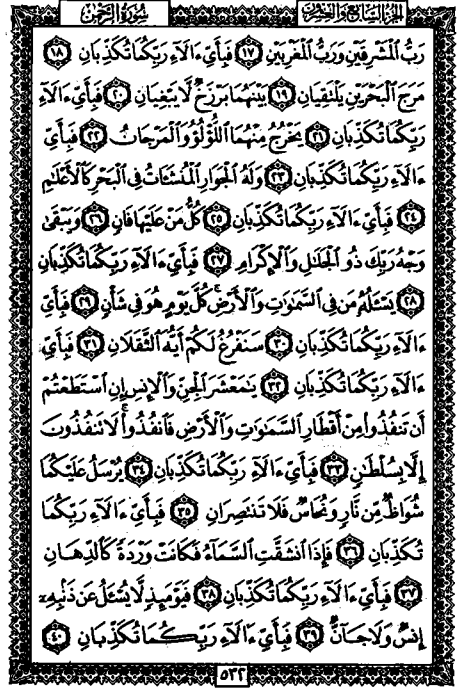 الجزء السابع والعشرون سورة الرحمن
رَبُّ ٱلْمَشْرِقَيْنِ وَرَبُّ ٱلْمَغْرِبَيْنِ ١٧ فَبِأَىِّ ءَالَآءِ رَبِّكُمَا تُكَذِّبَانِ ١٨
مَرَجَ ٱلْبَحْرَيْنِ يَلْتَقِيَانِ ١٩ بَيْنَهُمَا بَرْزَخٌ لَّا يَبْغِيَانِ ٢٠ فَبِأَىِّ ءَالَآءِ
رَبِّكُمَا تُكَذِّبَانِ ٢١ يَخْرُجُ مِنْهُمَا ٱللُّؤْلُؤُ وَٱلْمَرْجَانُ ٢٢ فَبِأَىِّ
ءَالَآءِ رَبِّكُمَا تُكَذِّبَانِ ٢٣ وَلَهُ ٱلْجَوَارِ ٱلْمُنشَـَٔاتُ فِى ٱلْبَحْرِ كَٱلْأَعْلَٰمِ
٢٤ فَبِأَىِّ ءَالَآءِ رَبِّكُمَا تُكَذِّبَانِ ٢٥ كُلُّ مَنْ عَلَيْهَا فَانٍ ٢٦ وَيَبْقَىٰ
وَجْهُ رَبِّكَ ذُو ٱلْجَلَٰلِ وَٱلْإِكْرَامِ ٢٧ فَبِأَىِّ ءَالَآءِ رَبِّكُمَا تُكَذِّبَانِ
٢٨ يَسْـَٔلُهُۥ مَن فِى ٱلسَّمَٰوَٰتِ وَٱلْأَرْضِ ۚ كُلَّ يَوْمٍ هُوَ فِى شَأْنٍ ٢٩ فَبِأَىِّ
ءَالَآءِ رَبِّكُمَا تُكَذِّبَانِ ٣٠ سَنَفْرُغُ لَكُمْ أَيُّهَ ٱلثَّقَلَانِ ٣١ فَبِأَىِّ
ءَالَآءِ رَبِّكُمَا تُكَذِّبَانِ ٣٢ يَٰمَعْشَرَ ٱلْجِنِّ وَٱلْإِنسِ إِنِ ٱسْتَطَعْتُمْ
أَن تَنفُذُوا۟ مِنْ أَقْطَارِ ٱلسَّمَٰوَٰتِ وَٱلْأَرْضِ فَٱنفُذُوا۟ ۚ لَا تَنفُذُونَ
إِلَّا بِسُلْطَٰنٍ ٣٣ فَبِأَىِّ ءَالَآءِ رَبِّكُمَا تُكَذِّبَانِ ٣٤ يُرْسَلُ عَلَيْكُمَا
شُوَاظٌ مِّن نَّارٍ وَنُحَاسٌ فَلَا تَنتَصِرَانِ ٣٥ فَبِأَىِّ ءَالَآءِ رَبِّكُمَا
تُكَذِّبَانِ ٣٦ فَإِذَا ٱنشَقَّتِ ٱلسَّمَآءُ فَكَانَتْ وَرْدَةً كَٱلدِّهَانِ
٣٧ فَبِأَىِّ ءَالَآءِ رَبِّكُمَا تُكَذِّبَانِ ٣٨ فَيَوْمَئِذٍ لَّا يُسْـَٔلُ عَن ذَنۢبِهِۦٓ
إِنسٌ وَلَا جَآنٌّ ٣٩ فَبِأَىِّ ءَالَآءِ رَبِّكُمَا تُكَذِّبَانِ ٤٠
٥٣٢